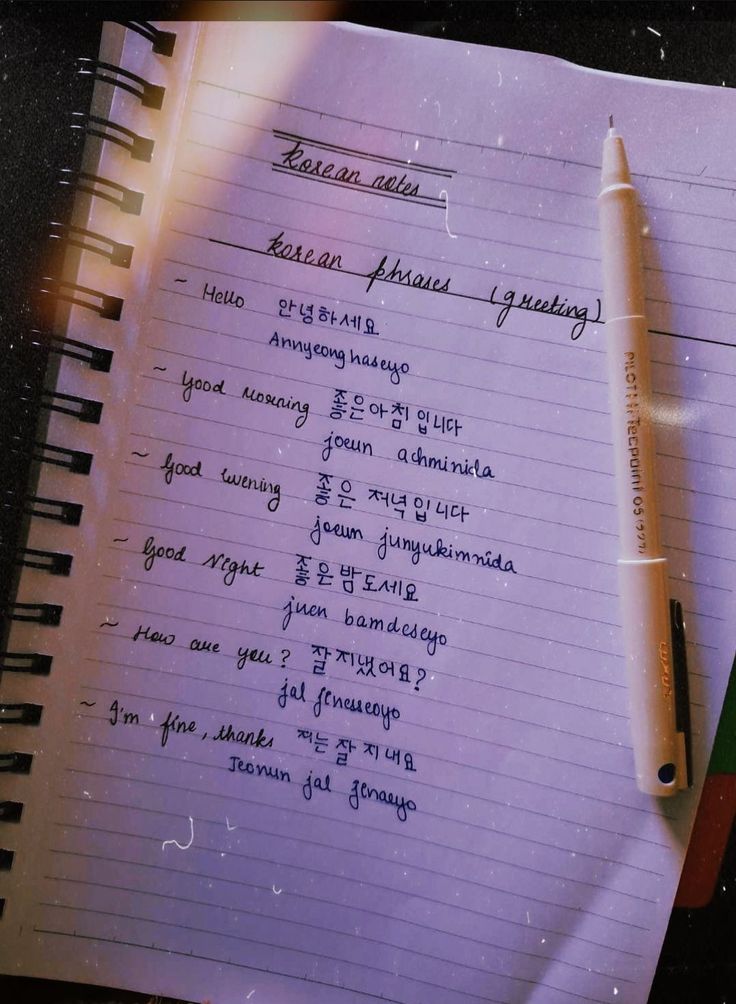 korean notes
korean phrases (greeting)
~ Hello 안녕하세요
Annyeonghaseyo
~ Good Morning 좋은아침입니다
joeun achminida
~ Good Evening 좋은 저녁입니다
joeun junyukimnida
~ Good Night 좋은밤도세요
juen bamdeseyo
~ How are you? 잘지냈어요?
jal jenesseoyo
~ I'm fine, thanks 저는 잘 지내요
Jeonun jal jenaeyo
PILOT Hi-Tecpoint 05